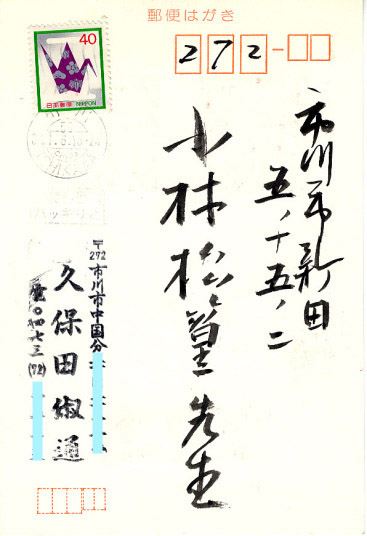 郵便はがき
40
日本郵便 NIPPON
272-
市川市新田
五ノ十五ノ二
小林松篁先生
〒272 市川市中国分
久保田俶通
〇四七三(72)